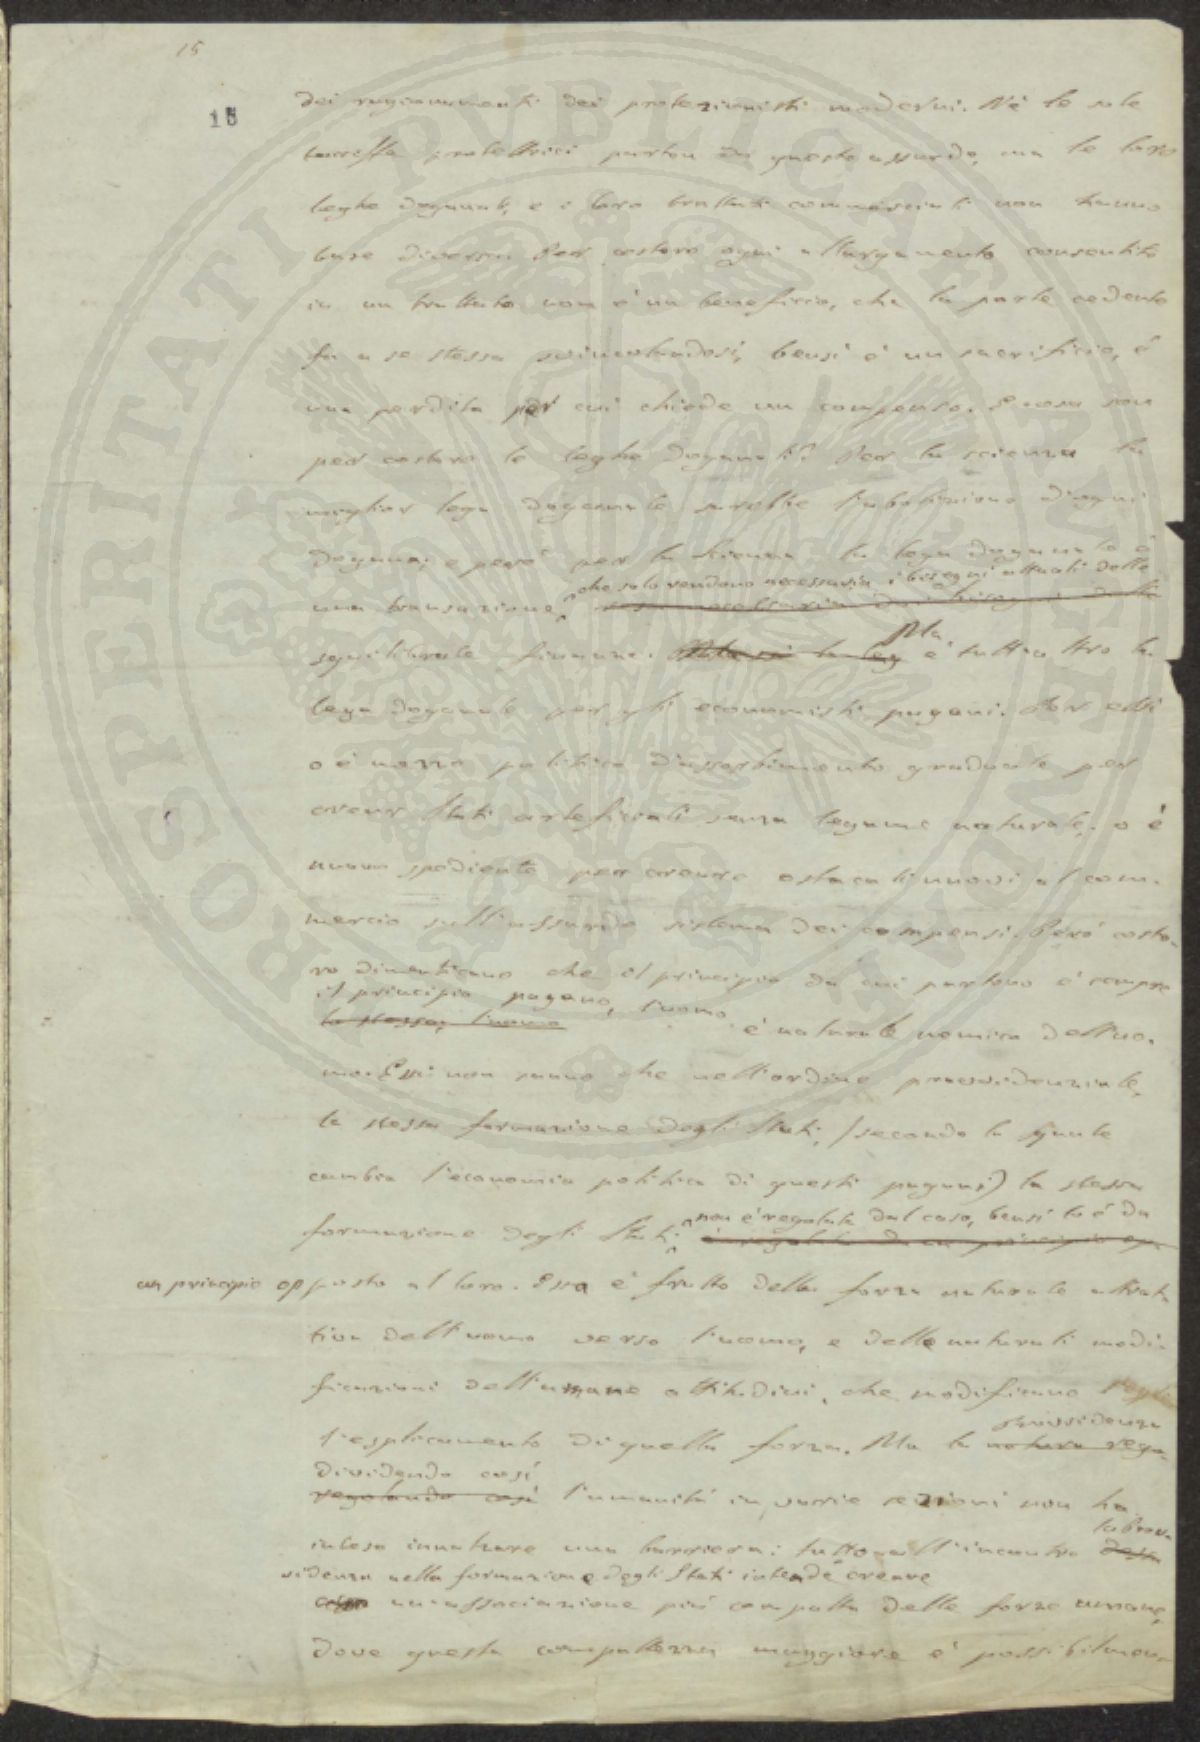 15
15
dei ragionamenti dei protezionisti moderni. Nè le sole
tariffe protettrici parton da questo assurdo, ma le loro
leghe doganali, e i loro trattati commerciali non hanno
base diversa. Per costoro ogni allargamento consentito
in un trattato non è un beneficio, che la parte cedente
fa a se stessa svincolandosi, bensì è un sacrificio, è
una perdita per cui chiede un compenso. E cosa son
per costoro le leghe doganali? Per la scienza la
miglior lega doganale sarebbe l'abolizione d'ogni
dogana: e però per la scienza la lega doganale è
che solo rendono necessaria i bisogni attuali delle
una transazione, resa necessaria dai bisogni delle
squilibrate finanze. Ma è tutt'altro la
lega doganale per gli economisti pagani. Per essi
o è mezzo politico d'assorbimento graduale per
crear Stati arteficiali senza legame naturale, o è
nuovo spediente per creare ostacoli nuovi al com-
mercio sull'assurdo sistema dei compensi. Però costo-
ro dimenticano che il principio da cui partono è sempre
il principio pagano, l'uomo
lo stesso; l'uomo è naturale nemico dell'uo-
mo. Essi non sanno che nell'ordine provvidenziale,
la stessa formazione degli Stati, (secondo la quale
cambia l'economia politica di questi pagani) la stessa
non è regolata dal caso, bensì lo è da
formazione degli Stati è regolata da un principio op-
un principio opposto al loro. Essa è frutto della forza naturale attrat-
tiva dell'uomo verso l'uomo, e delle naturali modi-
ficazioni dell'umane attitudini, che modificano
provvidenza
l'esplicamento di quella forza. Ma la natura rego-
dividendo così
regolando così l'umanità in varie sezioni non ha
la Prov-
inteso innalzare una barriera: tutto all'incontro dessa
videnza nella formazione degli Stati intende creare
un'associazione più compatta delle forze umane,
dove questa compattezza maggiore è possibilmen-